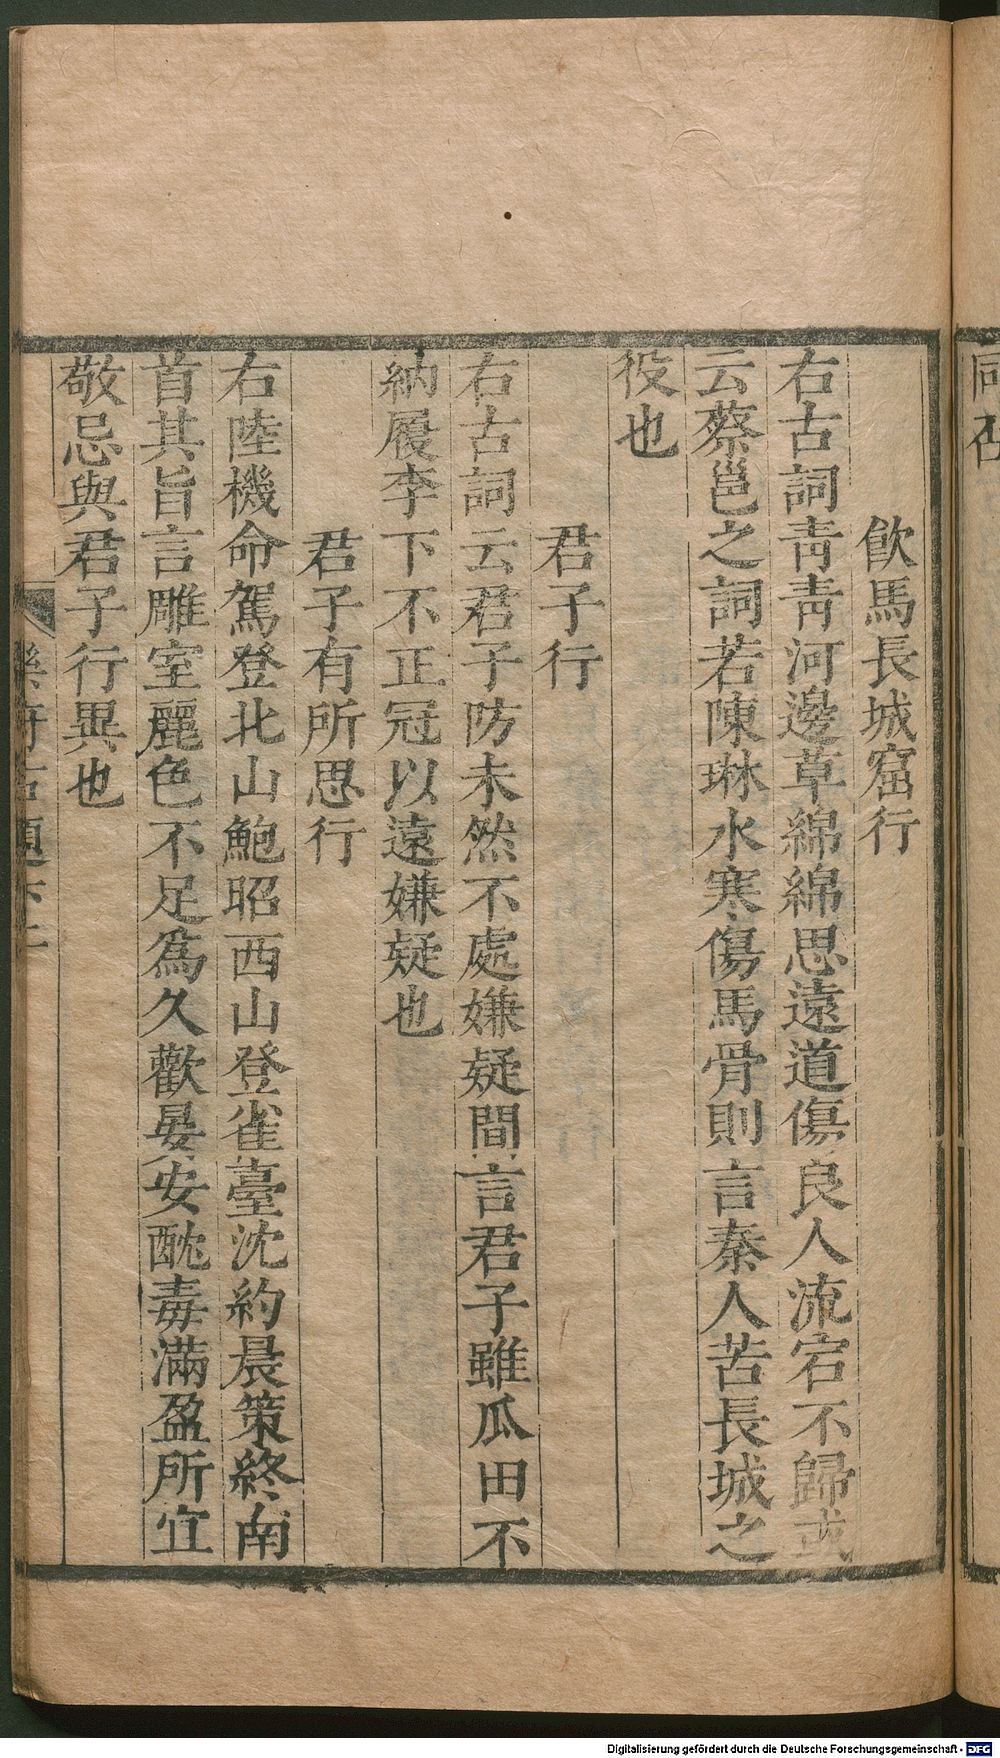 同在
飲馬長城窟行
右古詞靑靑河邊草綿綿思遠道傷良人流宕不歸或
云蔡邕之詞若陳琳水寒傷馬骨則言秦人苦長城之
役也
君子行
右古詞云君子防未然不處嫌疑間言君子雖瓜田不
納履李下不正冠以遠嫌疑也
君子有所思行
右陸機命駕登北山鮑昭西山登雀臺沈約晨策終南
首其旨言雕室麗色不足爲久歡晏安酖毒滿盈所宜
敬忌與君子行異也
樂府古題下二
Digitalisierung gefördert durch die Deutsche Forschungsgemeinschaft - DFG